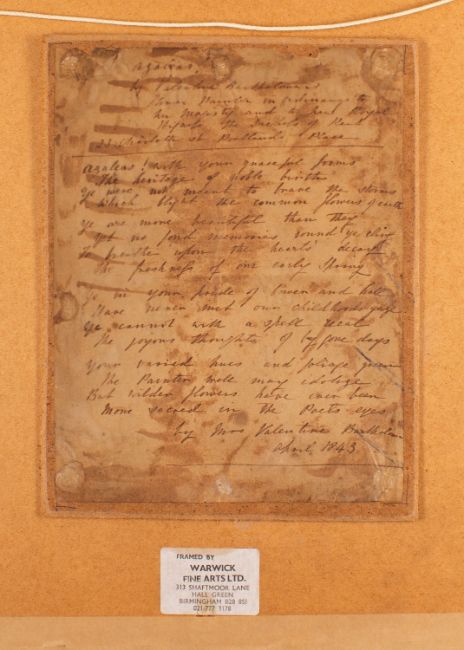 Azaleas
by Valentine Bartholomew
Flower Painter in ordinary to
her Majesty and to her Royal
Highness the Duchess of Kent
Charlotte St Portland Place
Azaleas! with your graceful forms
The heritage of noble birth
Ye were not meant to brave the storms
Which blight the common flowers of earth
Ye are more beautiful than they
Yet no fond memories round ye cling
To breathe upon the hearts' decay
The freshness of our early Spring
Ye in your pride of bower and hall
Have never met our childhoods gaze
Ye cannot with a spell recal
The joyous thoughts of by gone days
Your varied hues and foliage green
The Painter well may idolize
But wilder flowers have ever been
More sacred in the Poets eyes
by Mrs Valentine Bartholomew
April 1843
FRAMED BY
WARWICK
FINE ARTS LTD.
313 SHAFTMOOR LANE
HALL GREEN
BIRMINGHAM B28
021-777 1178